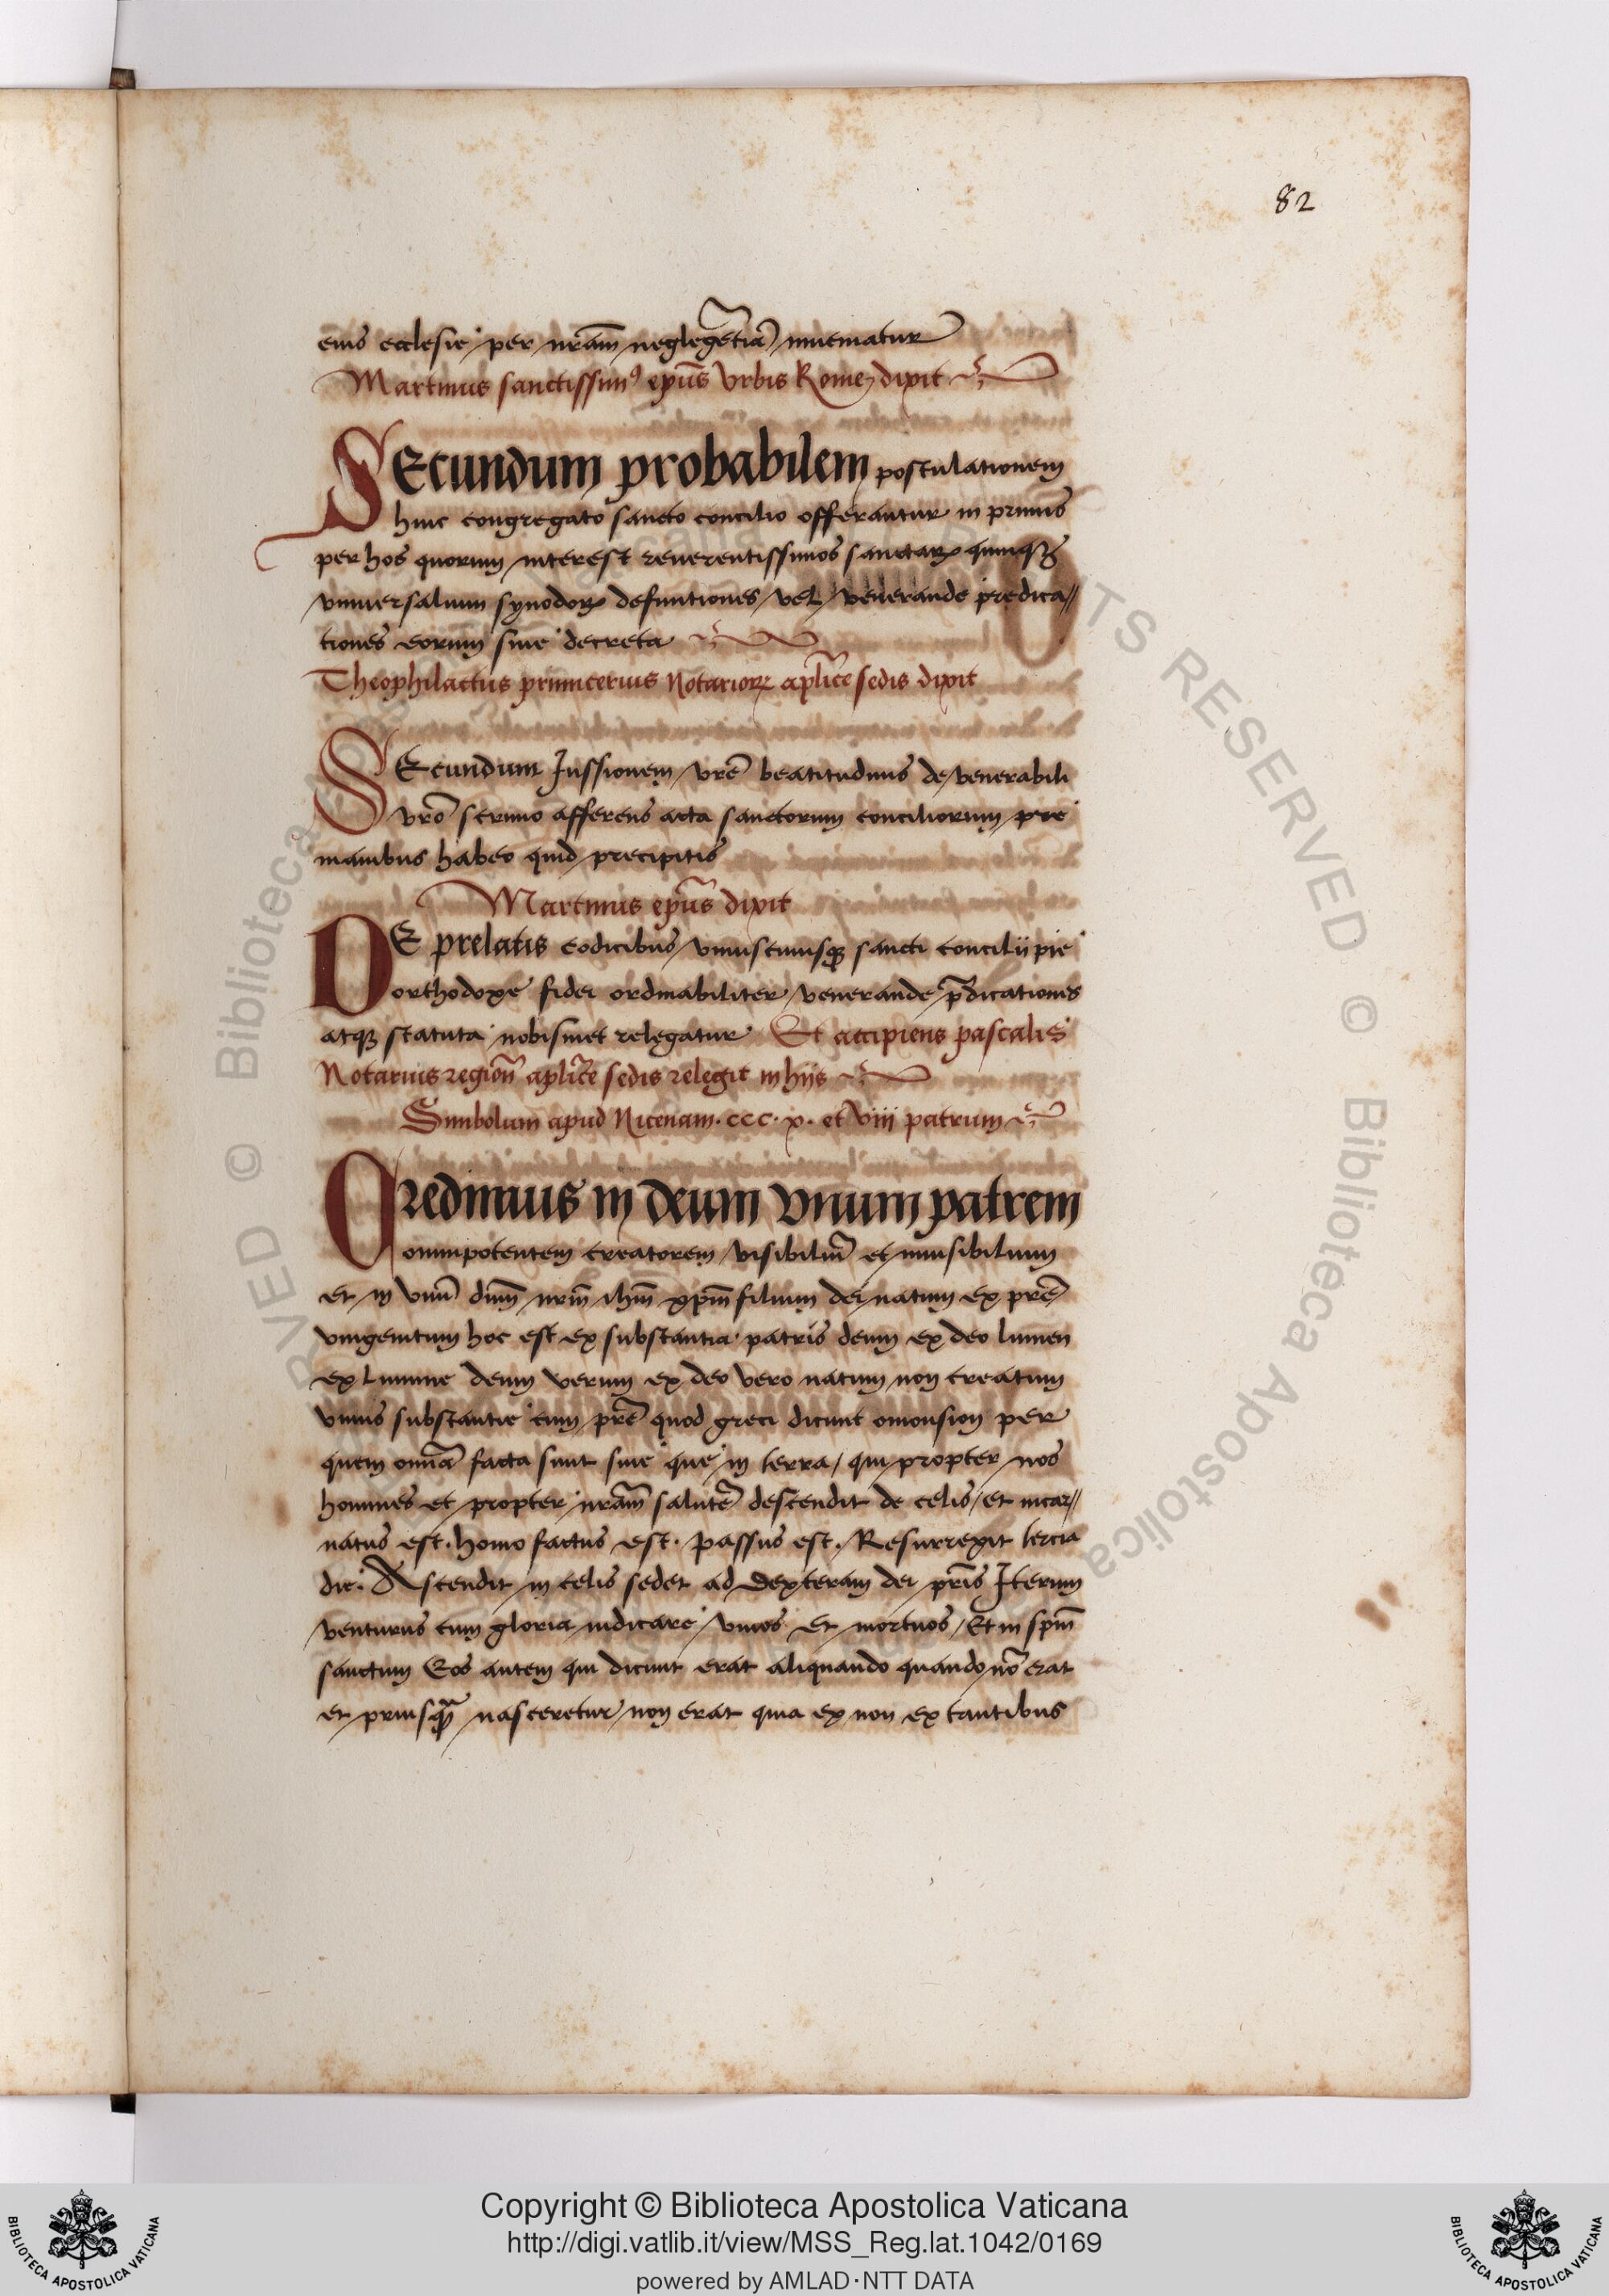 82
eius ecclesie per nr̃am neglegẽtiã inueniatur
Martinus sanctissim⁹ ep̃us Vrbis Rome dixit
SEcundum probabilem postulationem
huic congregato sancto concilio offerantur in primis
per hos quorum interest reuerentissimos sanctaꝝ quinqꝫ
vniuersalium synodoꝝ definitiones vel venerande predica//
tiones eorum siue decreta
Theophilactus primicerius Notarioꝝ aplice sedis dixit
SEcundum Iussionem vrẽ beatitudinis de venerabili
vrõ scrinio afferens acta sanctorum conciliorum pre
manibus habeo quid precipitis
Martinus ep̃us dixit
DE prelatis codicibus vniuscuiusqꝫ sancti concilii pie
orthodoxe fidei ordinabiliter venerande p̃dicationis
atqꝫ statuta nobismet relegatur Et accipiens pascalis
Notarius region̄ aplice sedis relegit in hiis
Simbolum apud Nicenam. ccc. x. et viii patrum
Credimus in deum vnum patrem
omnipotentem creatorem visibiliũ et inuisibilium
et in vnũ dñm nr̃m ihm̃ xpm̃ filium dei natum ex prẽ
vnigenitum hoc est ex substantia patris deum ex deo lumen
ex lumine deum verum ex deo vero natum non creatum
vnius substantie cum prẽ quod greci dicunt omousion per
quem omnã facta sunt siue que in terra, qui propter nos
homines et propter nr̃am salutẽ descendit de celis, et incar//
natus est. homo factus est. passus est. Resurrexit tercia
die. Ascendit in celis sedet ad dexteram dei pr̃is Iterum
venturus cum gloria iudicare viuos et mortuos, Et in spm̃
sanctum Eos autem qui dicunt erat aliquando quando nõ erat
et priusqꝫ̃ nasceretur non erat quia ex non extantibus
Copyright © Biblioteca Apostolica Vaticana
http://digi.vatlib.it/view/MSS_Reg.lat.1042/0169
powered by AMLAD·NTT DATA
BIBLIOTECA APOSTOLICA VATICANA
BIBLIOTECA APOSTOLICA VATICANA